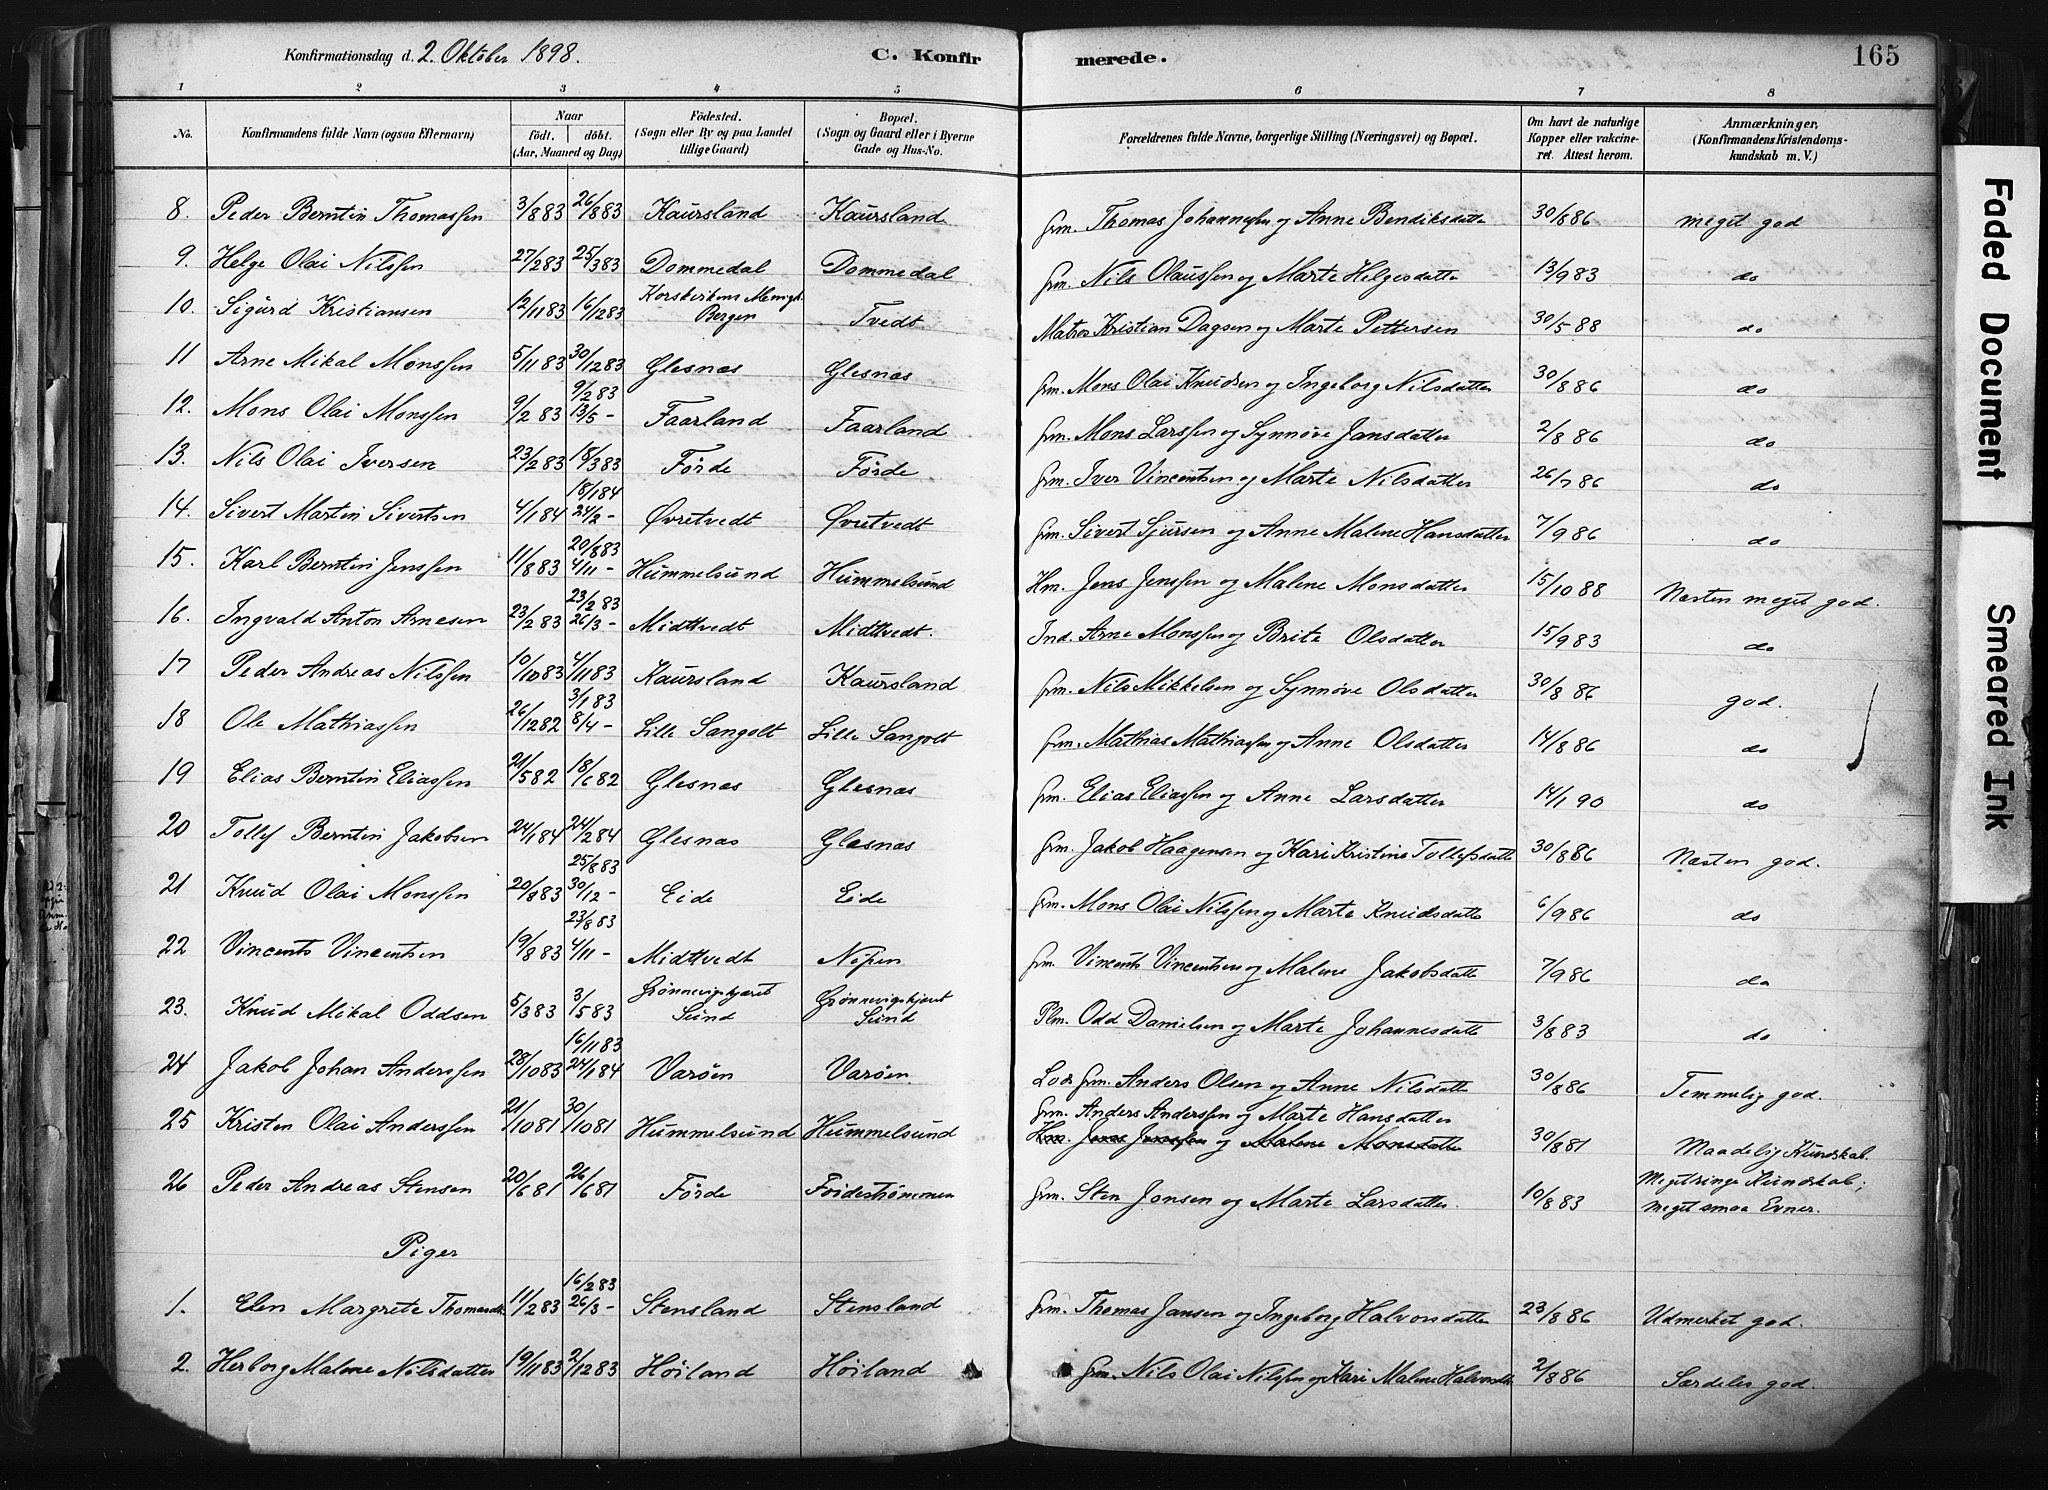 Konfirmationsdag d. 2. Oktober 1898. C. Konfir merede. 165
1 2 3 4 5 6 7 8
No. Konfirmandens fulde Navn (ogsaa Efternavn) Naar födt. döbt. (Aar, Maaned og Dag) Födested. (Sogn eller By og paa Landet tillige Gaard) Bopæl. (Sogn og Gaard eller i Byerne Gade og Hus-No. Forældrenes fulde Navne, borgerlige Stilling (Næringsvei) og Bopæl. Om havt de naturlige Kopper eller vakcineret. Attest herom. Anmærkninger, (Konfirmandens Kristendomskundskab m. V.)
8. Peder Berntin Thomassen 3/883 26/883 Kaursland Kaursland Grm. Thomas Johannessen og Anne Bendiksdatter 30/886 meget god
9. Helge Olai Nilssen 27/283 25/383 Dommedal Dommedal Grm. Nils Olaussen og Marte Helgesdatter 13/983 do
10. Sigurd Kristiansen 12/1183 16/1283 Korskirkens Menigh. Bergen Tvedt Matros Kristian Dagsen og Marte Pettersen 30/588 do
11 Arne Mikal Monssen 5/1183 30/1283 Glesnæs Glesnæs Grm. Mons Olai Knudsen og Ingeborg Nilsdatter 30/886 do
12. Mons Olai Monssen 9/283 9/283 13/5- Faarland Faarland Grm. Mons Larssen og Synnøve Jansdatter 2/886 do
13. Nils Olai Iversen 23/283 18/383 Förde Förde Grm. Iver Vincentsen og Marte Nilsdatter 26/786 do
14. Sivert Martin Sivertsen 4/184 18/184 24/2- Øvretvedt Øvretvedt Grm. Sivert Sjursen og Anne Malene Hansdatter 7/986 do
15. Karl Berntin Jenssen 11/883 20/883 4/11- Hummelsund Hummelsund Hm. Jens Jenssen og Malene Monsdatter 15/1088 Næsten meget god.
16. Ingvald Anton Arnesen 23/283 23/283 26/3- Midttvedt Midttvedt. Ind. Arne Monssen og Brite Olsdatter 15/983 do
17 Peder Andreas Nilssen 10/1083 4/1183 Kaursland Kaursland Grm. Nils Mikkelsen og Synnøve Olsdatter 30/886 god.
18 Ole Mathiassen 26/1282 3/183 8/4- Lille Sangolt Lille Sangolt Grm. Mathias Mathiassen og Anne Olsdatter 14/886 do
19 Elias Berntin Eliassen 21/582 18/682 Glesnæs Glesnæs Grm. Elias Eliassen og Anne Larsdatter 14/190 do
20 Tollef Berntin Jakobsen 24/184 24/284 Glesnæs Glesnæs Grm. Jakob Haagensen og Kari Kristine Tollefsdatter 30/886 Næsten god.
21 Knud Olai Monssen 20/883 25/883 30/12- Eide Eide Grm. Mons Olai Nilssen og Marte Knudsdatter 6/986 do
22 Vincents Vincentsen 19/883 23/883 4/11- Midttvedt Nipen Grm. Vincents Vincentsen og Malene Jakobsdatter 7/986 do
23. Knud Mikal Oddsen 5/383 3/583 Grönnevigskjæret Sund Grönnevigskjæret Sund Plm. Odd Danielsen og Marte Johannesdatter 3/883 do
24 Jakob Johan Anderssen 28/1083 16/1183 24/184 Varöen Varöen. Lods Grm. Anders Olsen og Anne Nilsdatter 30/886 Temmelig god.
25 Kristen Olai Anderssen 21/1081 30/1081 Hummelsund Hummelsund Grm. Anders Anderssen og Marte Hansdatter Hm. Jens Jenssen og Malene Monsdatter 30/881 Maadelig Kundskab.
26 Peder Andreas Stensen 20/681 26/681 Förde Fördeströmmen Grm. Sten Jonsen og Marte Larsdatter. 10/883 Meget ringe Kundskab; meget smaa Evner.
Piger
1. Elen Margrete Thomasdtr 11/283 16/283 26/3- Stensland Stensland Grm. Thomas Jansen og Ingeborg Halvorsdatter 23/886 Udmerket god.
2. Herborg Malene Nilsdatter 19/1183 2/1283 Höiland Höiland Grm. Nils Olai Nilssen og Kari Malene Halvorsdtr 2/886 Særdeles god.
Faded Document
Smeared Ink